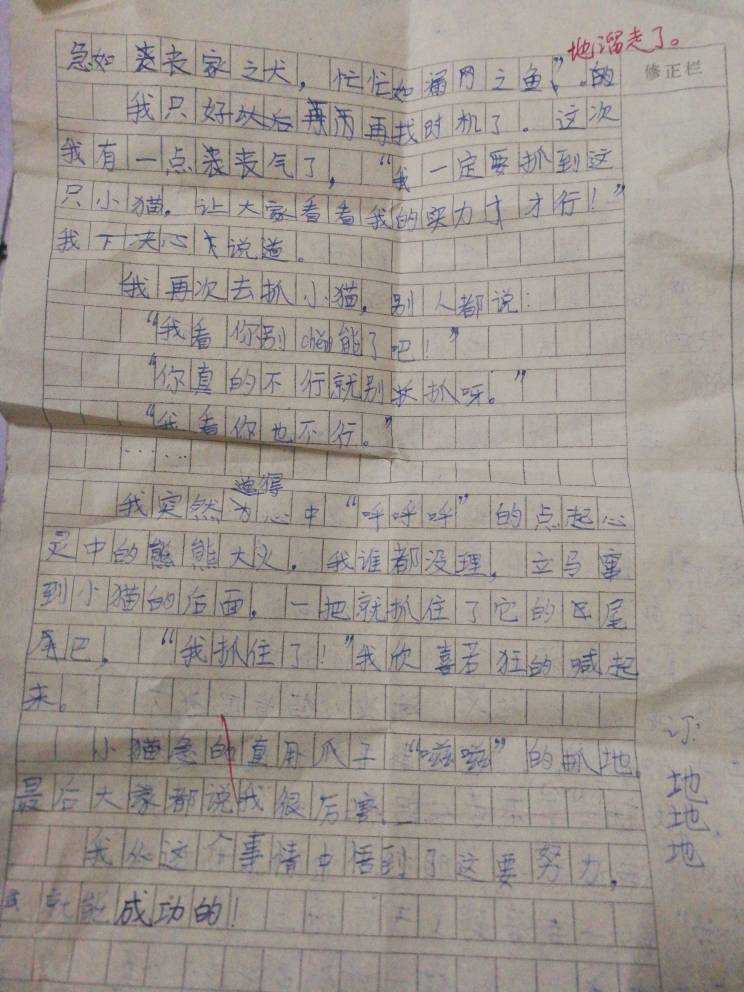 地溜走了。
修正栏
急如丧家之犬，忙忙如漏网之鱼”的
我只好再找时机了。这次
我有一点丧气了，“我一定要抓到这
只小猫。让大家看看我的实力才行！”
我下决心说道。
我再次去抓小猫，别人都说：
“我看你别chěng能了吧！”
“你真的不行就别抓呀。”
“我看你也不行。”
……
觉得
我突然心中“呼呼呼”的点起心
灵中的熊熊大火，我谁都没理，立马窜
到小猫的后面，一把就抓住了它的尾
尾巴，“我抓住了！”我欣喜若狂的喊起
来。
小猫急的直用爪子“嗞嗞”的抓地，
最后大家都说我很厉害
我从这个事情中悟到了这要努力，
就能成功的！
订：
地
地
地